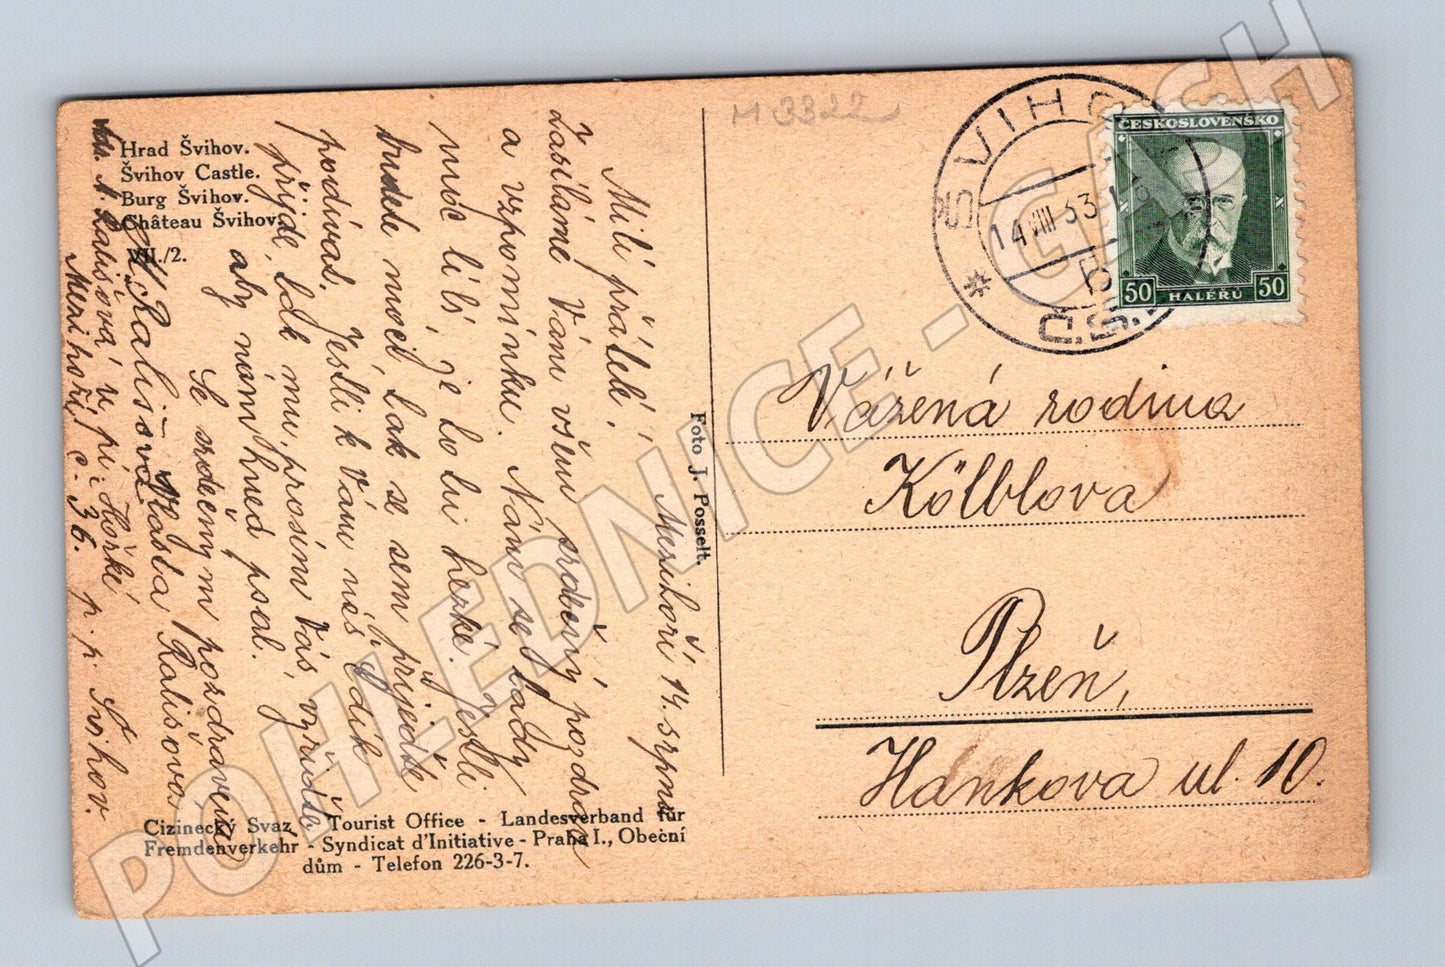 M 3322
Hrad Švihov.
Švihov Castle.
Burg Švihov.
Château Švihov.
VII./2.
ŠVIHO
14.VIII.33.16
Č.S.
ČESKOSLOVENSKO
50 HALÉŘŮ 50
Merihoří 14. srpna
Milí přátelé!
Zasíláme Vám všem srdečný pozdrav
a vzpomínku. Nám se tady
moc líbí, je to tu hezké. Jestli
budete moct, tak se sem přijeďte
podívat. Jestli k Vám náš Edík
přijde, tak mu, prosím Vás, vyřiďte
aby nám hned psal.
Se srdečným pozdravem
M. Rališová Vlasta Rališova
A. Rališová u pí Hořké
Merihoří č. 36. p. p. Švihov.
Foto J. Posselt.
Vážená rodina
Kölblova
Plzeň,
Hankova ul. 10.
Cizinecký Svaz - Tourist Office - Landesverband für
Fremdenverkehr - Syndicat d'Initiative - Praha I., Obecní
dům - Telefon 226-3-7.
POHLEDNICE - CASH